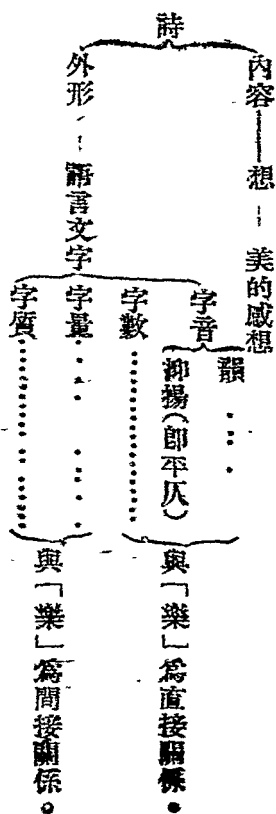 詩
內容——想——美的感想
外形——語言文字
字音
韻……
抑揚(卽平仄)
字數……
與「樂」爲直接關係。
字量……
字質……
與「樂」爲間接關係。